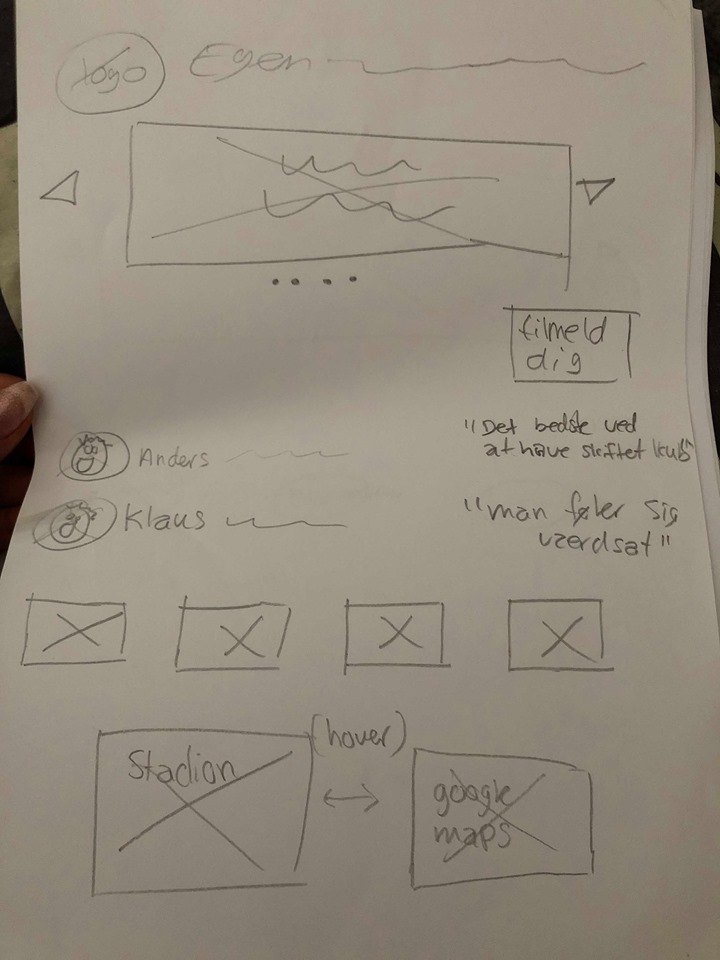 Logo
Egen
tilmeld
dig
"Det bedste ved
at have skiftet klub"
Anders
Klaus
"man føler sig
værdsat"
Stadion
(hover)
google
maps